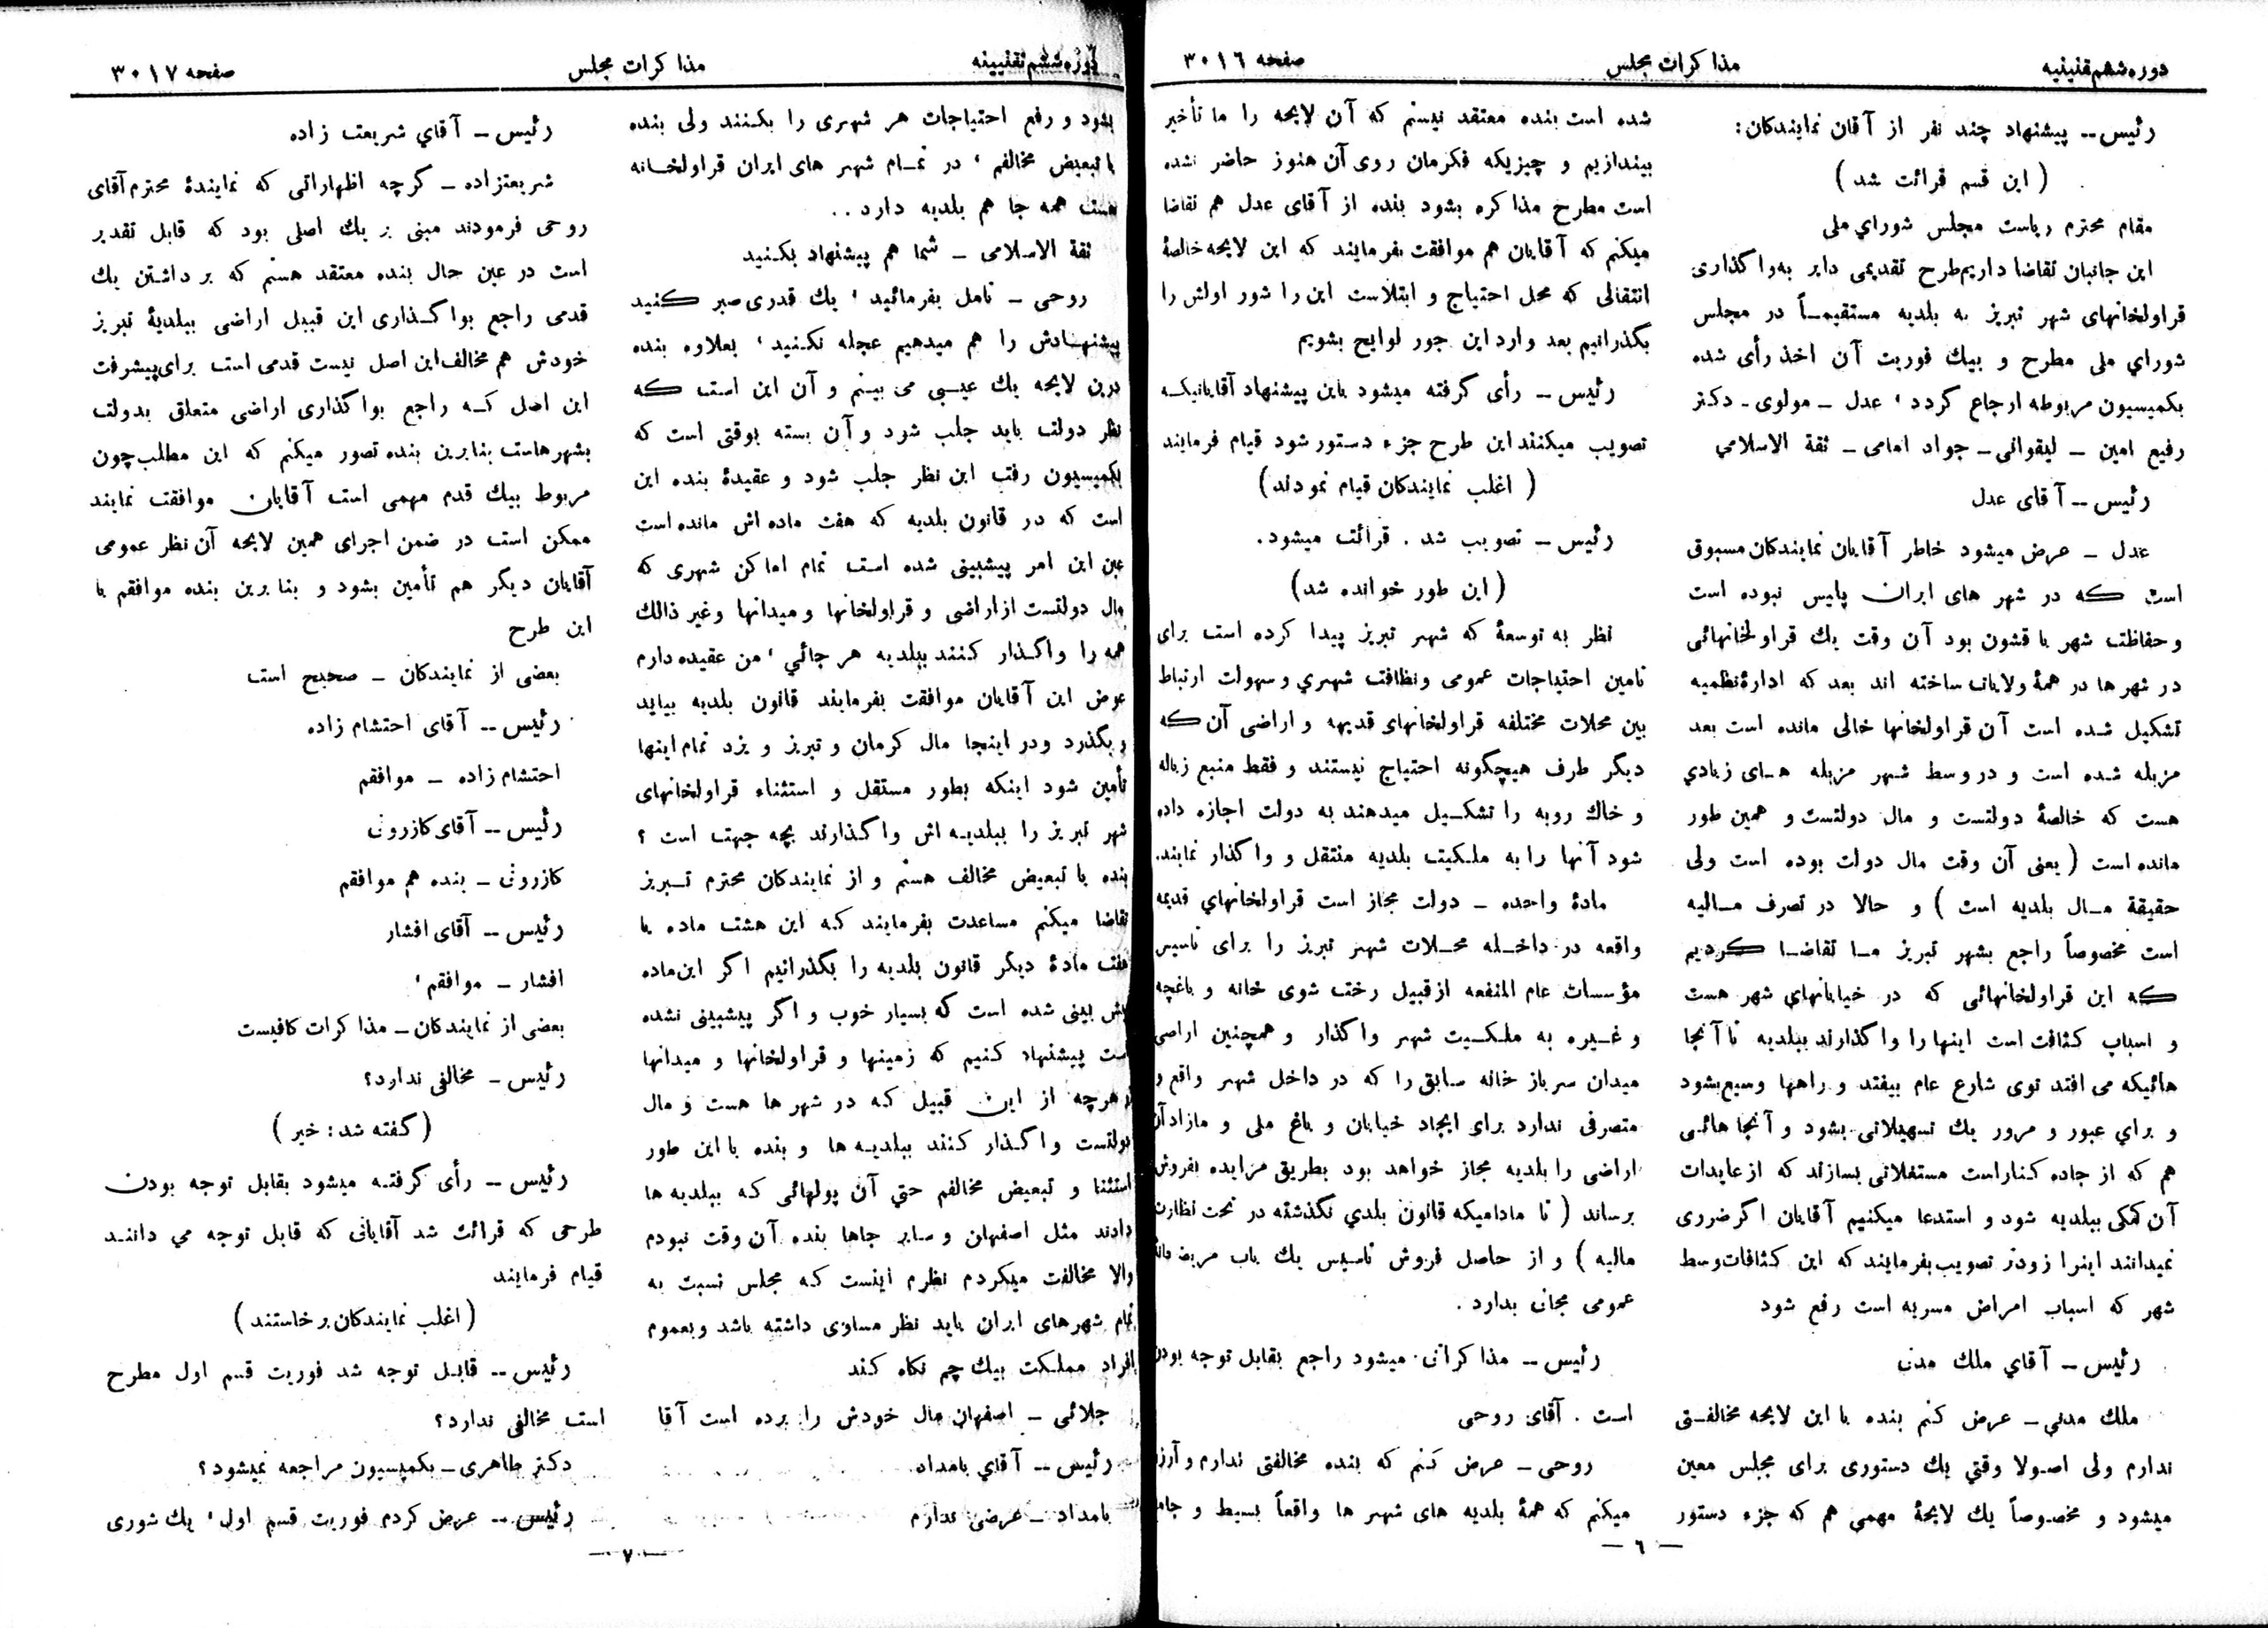 دوره ششم تقنینیه
مذاکرات مجلس
صفحه ۳۰۱۶
رئیس -- پیشنهاد چند نفر از آقایان نمایندکان:
( این قسم قرائت شد )
مقام محترم ریاست مجلس شورای ملی
این جانبان تقاضا داریم طرح تقدیمی دایر به واکذاری
قراولخانهای شهر تبریز به بلدیه مستقیماً در مجلس
شورای ملی مطرح و بیك فوریت آن اخذ رأی شده
بکمیسیون مربوطه ارجاع کردد، عدل - مولوی - دکتر
رفیع امین - لیقوانی - جواد امامی - ثقة الاسلامی
رئیس -- آقای عدل
عدل - عرض میشود خاطر آقایان نمایندکان مسبوق
است که در شهر های ایران پلیس نبوده است
و حفاظت شهر با قشون بود آن وقت یك قراولخانهائی
در شهر ها در همهٔ ولایات ساخته اند بعد که ادارهٔ نظمیه
تشکیل شده است آن قراولخانها خالی مانده است بعد
مزبله شده است و در وسط شهر مزبله های زیادی
هست که خالصهٔ دولتست و مال دولتست و همین طور
مانده است ( یعنی آن وقت مال دولت بوده است ولی
حقیقة مال بلدیه است ) و حالا در تصرف مالیه
است مخصوصاً راجع بشهر تبریز ما تقاضا کردیم
که این قراولخانهائی که در خیابانهای شهر هست
و اسباب کثافت است اینها را واکذارند ببلدیه تا آنجا
هائیکه می افتد توی شارع عام بیفتد و راهها وسیع بشود
و برای عبور و مرور یك تسهیلاتی بشود و آنجا هائی
هم که از جاده کنار است مستغلاتی بسازند که از عایدات
آن کمکی ببلدیه شود و استدعا میکنیم آقایان اکر ضرری
نمیدانند اینرا زودتر تصویب بفرمایند که این کثافات وسط
شهر که اسباب امراض مسریه است رفع شود
رئیس -- آقای ملك مدنی
ملك مدنی - عرض کنم بنده با این لایحه مخالفتی
ندارم ولی اصولا وقتی یك دستوری برای مجلس معین
میشود و مخصوصاً یك لایحهٔ مهمی هم که جزء دستور
شده است بنده معتقد نیستم که آن لایحه را ما تأخیر
بیندازیم و چیزیکه فکرمان روی آن هنوز حاضر نشده
است مطرح مذاکره بشود بنده از آقای عدل هم تقاضا
میکنم که آقایان هم موافقت بفرمایند که این لایحه خالصهٔ
انتقالی که محل احتیاج و ابتلاست این را شور اولش را
بگذرانیم بعد وارد این جور لوایح بشویم
رئیس - رأی گرفته میشود باین پیشنهاد آقایانیکه
تصویب میکنند این طرح جزء دستور شود قیام فرمایند
( اغلب نمایندکان قیام نمودند )
رئیس - تصویب شد . قرائت میشود.
( این طور خوانده شد )
نظر به توسعهٔ که شهر تبریز پیدا کرده است برای
تامین احتیاجات عمومی و نظافت شهری و سهولت ارتباط
بین محلات مختلفه قراولخانهای قدیمه و اراضی آن که
دیگر طرف هیچگونه احتیاج نیستند و فقط منبع زباله
و خاك روبه را تشکیل میدهند به دولت اجازه داده
شود آنها را به ملکیت بلدیه منتقل و واکذار نمایند.
مادهٔ واحده - دولت مجاز است قراولخانهای قدیمه
واقعه در داخله محلات شهر تبریز را برای تاسیس
مؤسسات عام المنفعه از قبیل رخت شوی خانه و باغچه
و غیره به ملکیت شهر واکذار و همچنین اراضی
میدان سرباز خانه سابق را که در داخل شهر واقع و
متصرفی ندارد برای ایجاد خیابان و باغ ملی و مازاد آن
اراضی را بلدیه مجاز خواهد بود بطریق مزایده بفروش
برساند ( تا مادامیکه قانون بلدی نگذشته در تحت نظارت
مالیه ) و از حاصل فروش تاسیس یك باب
عمومی مجانی بدارد .
رئیس -- مذاکرات میشود راجع بقابل توجه بودن
است . آقای روحی
روحی - عرض کنم که بنده مخالفتی ندارم و
میکنم که همهٔ بلدیه های شهر ها واقعاً بسیط و
— ٦ —
دوره ششم تقنینیه
مذاکرات مجلس
صفحه ۳۰۱۷
بشود و رفع احتیاجات هر شهری را بکنند ولی بنده
با تبعیض مخالفم، در تمام شهر های ایران قراولخانه
هست همه جا هم بلدیه دارد . .
ثقة الاسلامی - شما هم پیشنهاد بکنید
روحی - تامل بفرمائید، یك قدری صبر کنید
پیشنهادش را هم میدهیم عجله نکنید، بعلاوه بنده
درین لایحه یك عیبی می بینم و آن این است که
نظر دولت باید جلب شود و آن بسته بوقتی است که
بکمیسیون رفت این نظر جلب شود و عقیدهٔ بنده این
است که در قانون بلدیه که هفت ماده اش مانده است
عین این امر پیشبینی شده است تمام اماکن شهری که
مال دولتست از اراضی و قراولخانها و میدانها و غیر ذالك
همه را واکذار کنند ببلدیه هر جائی، من عقیده دارم
عوض این آقایان موافقت بفرمایند قانون بلدیه بیاید
و بگذرد و در اینجا مال کرمان و تبریز و یزد تمام اینها
تأمین شود اینکه بطور مستقل و استثناء قراولخانهای
شهر تبریز را ببلدیه اش واکذارند بچه جهت است ؟
بنده با تبعیض مخالف هستم و از نمایندکان محترم تبریز
تقاضا میکنم مساعدت بفرمایند که این هشت ماده یا
هفت مادهٔ دیگر قانون بلدیه را بگذرانیم اکر این ماده
پیش بینی شده است که بسیار خوب و اکر پیشبینی نشده
است پیشنهاد کنیم که زمینها و قراولخانها و میدانها
هرچه از این قبیل که در شهر ها هست و مال
دولتست واکذار کنند ببلدیه ها و بنده با این طور
استثنا و تبعیض مخالفم حتی آن پولهائی که ببلدیه ها
دادند مثل اصفهان و سایر جاها بنده آن وقت نبودم
والا مخالفت میکردم نظرم اینست که مجلس نسبت به
تمام شهرهای ایران باید نظر مساوی داشته باشد و بعموم
افراد مملکت بیك چم نکاه کند
جلائی - اصفهان مال خودش را برده است آقا
رئیس -- آقای بامداد
بامداد - عرضی ندارم
رئیس - آقای شریعت زاده
شریعتزاده - کرچه اظهاراتی که نمایندهٔ محترم آقای
روحی فرمودند مبنی بر یك اصلی بود که قابل تقدیر
است در عین حال بنده معتقد هستم که بر داشتن یك
قدمی راجع بواکذاری این قبیل اراضی ببلدیهٔ تبریز
خودش هم مخالف این اصل نیست قدمی است برای پیشرفت
این اصل که راجع بواکذاری اراضی متعلق بدولت
بشهرهاست بنابرین بنده تصور میکنم که این مطلب چون
مربوط بیك قدم مهمی است آقایان موافقت نمایند
ممکن است در ضمن اجرای همین لایحه آن نظر عمومی
آقایان دیگر هم تأمین بشود و بنابرین بنده موافقم با
این طرح
بعضی از نمایندکان - صحیح است
رئیس -- آقای احتشام زاده
احتشام زاده - موافقم
رئیس -- آقای کازرونی
کازرونی - بنده هم موافقم
رئیس -- آقای افشار
افشار - موافقم،
بعضی از نمایندکان - مذاکرات کافیست
رئیس - مخالفی ندارد؟
( کفته شد : خیر )
رئیس -- رأی کرفته میشود بقابل توجه بودن
طرحی که قرائت شد آقایانی که قابل توجه می دانند
قیام فرمایند
( اغلب نمایندکان برخاستند )
رئیس -- قابل توجه شد فوریت قسم اول مطرح
است مخالفی ندارد؟
دکتر طاهری - بکمیسیون مراجعه نمیشود؟
رئیس -- عرض کردم فوریت قسم اول، یك شوری
— ٧ —